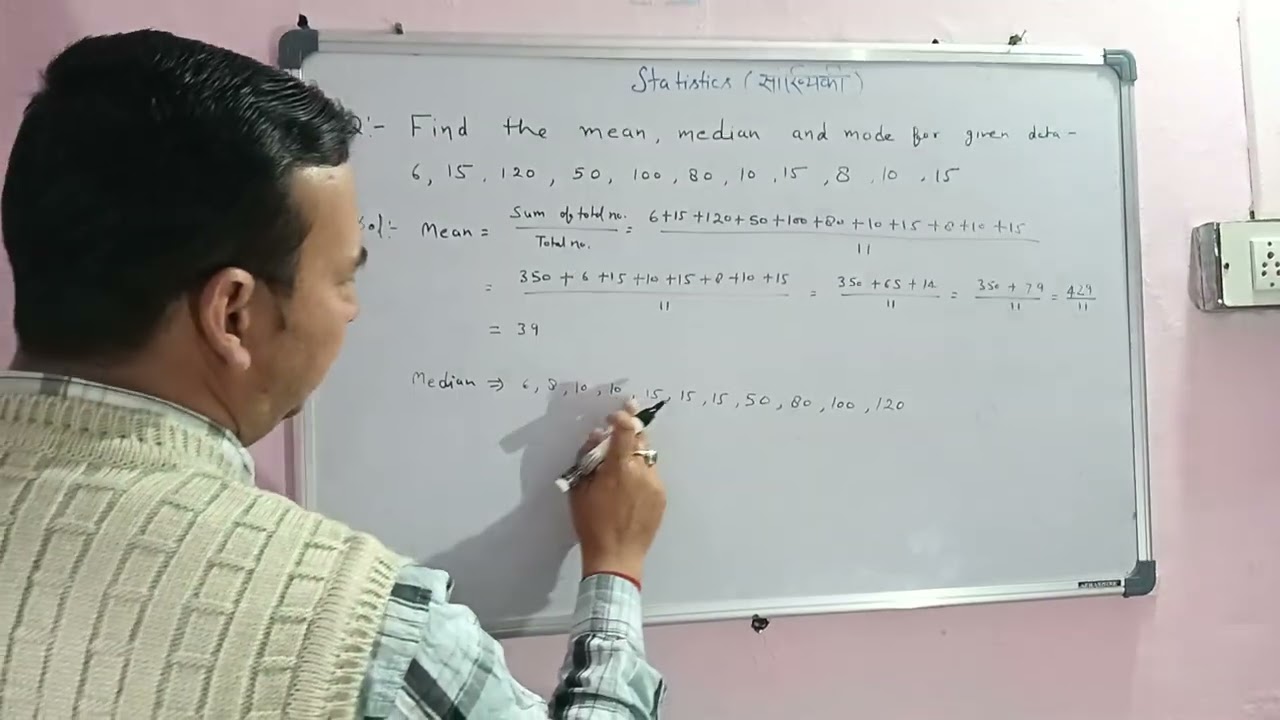 Statistics (सांख्यिकी)
Q:- Find the mean, median and mode for given data-
6, 15, 120, 50, 100, 80, 10, 15, 8, 10, 15
Sol:- Mean = Sum of total no. / Total no. = 6+15+120+50+100+80+10+15+8+10+15 / 11
= 350+6+15+10+15+8+10+15 / 11 = 350+65+14 / 11 = 350+79 / 11 = 429 / 11
= 39
Median ⇒ 6, 8, 10, 10, 15, 15, 15, 50, 80, 100, 120